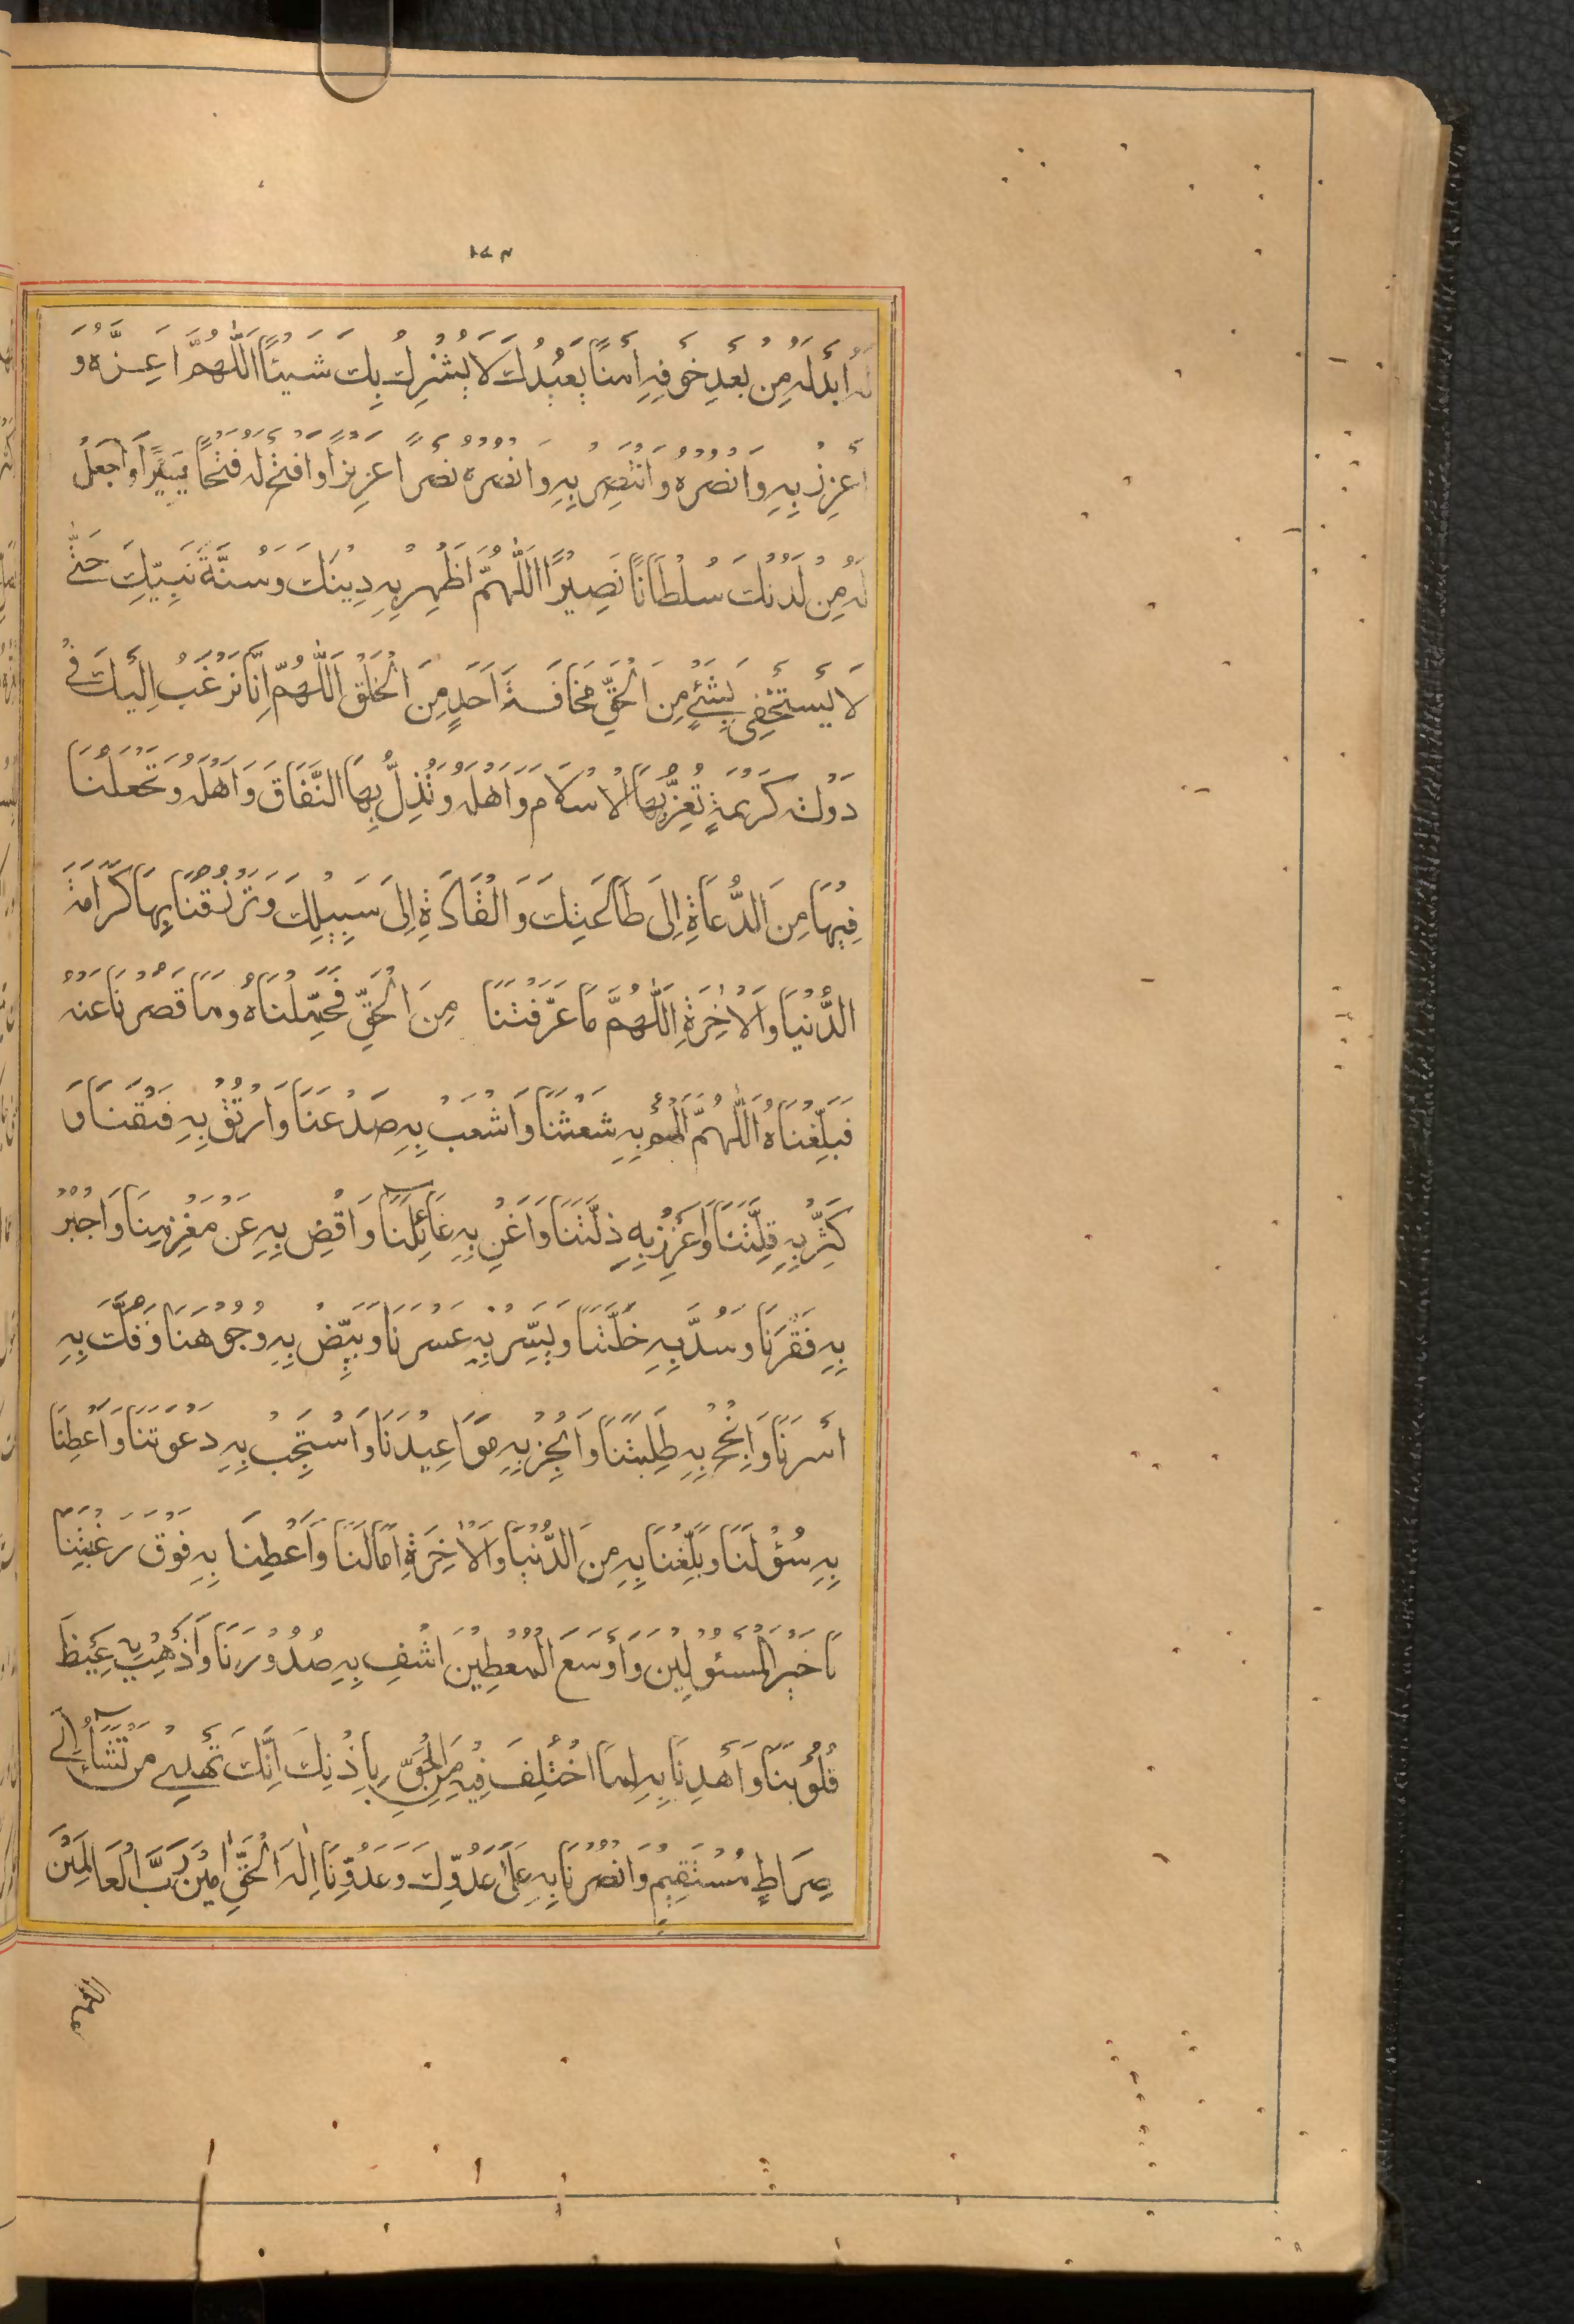 لَهُ اَبْدِلْهُ مِنْ بَعْدِ خَوْفِهِ اَمْنًا يَعْبُدُكَ لَا يُشْرِكُ بِكَ شَيْئًا اَللّٰهُمَّ اَعِزَّهُ وَ
اَعْزِزْ بِهِ وَانْصُرْهُ وَانْتَصِرْ بِهِ وَانْصُرْهُ نَصْرًا عَزِيزًا وَافْتَحْ لَهُ فَتْحًا يَسِيرًا وَاجْعَلْ
لَهُ مِنْ لَدُنْكَ سُلْطَانًا نَصِيرًا اَللّٰهُمَّ اَظْهِرْ بِهِ دِينَكَ وَسُنَّةَ نَبِيِّكَ حَتّٰى
لَا يَسْتَخْفِىَ بِشَيْءٍ مِنَ الْحَقِّ مَخَافَةَ اَحَدٍ مِنَ الْخَلْقِ اَللّٰهُمَّ اِنَّا نَرْغَبُ اِلَيْكَ فِى
دَوْلَةٍ كَرِيمَةٍ تُعِزُّ بِهَا الْاِسْلَامَ وَاَهْلَهُ وَتُذِلُّ بِهَا النِّفَاقَ وَاَهْلَهُ وَتَجْعَلُنَا
فِيهَا مِنَ الدُّعَاةِ اِلَى طَاعَتِكَ وَالْقَادَةِ اِلَى سَبِيلِكَ وَتَرْزُقُنَا بِهَا كَرَامَةَ
الدُّنْيَا وَالْاٰخِرَةِ اَللّٰهُمَّ مَا عَرَّفْتَنَا مِنَ الْحَقِّ فَحَمِّلْنَاهُ وَمَا قَصُرْنَا عَنْهُ
فَبَلِّغْنَاهُ اَللّٰهُمَّ الْمُمْ بِهِ شَعْثَنَا وَاشْعَبْ بِهِ صَدْعَنَا وَارْتُقْ بِهِ فَتْقَنَا وَ
كَثِّرْ بِهِ قِلَّتَنَا وَاَعْزِزْ بِهِ ذِلَّتَنَا وَاَغْنِ بِهِ عَائِلَنَا وَاقْضِ بِهِ عَنْ مَغْرَمِينَا وَاجْبُرْ
بِهِ فَقْرَنَا وَسُدَّ بِهِ خَلَّتَنَا وَيَسِّرْ بِهِ عُسْرَنَا وَبَيِّضْ بِهِ وُجُوهَنَا وَفُكَّ بِهِ
اَسْرَنَا وَاَنْجِحْ بِهِ طَلِبَتَنَا وَاَنْجِزْ بِهِ مَوَاعِيدَنَا وَاسْتَجِبْ بِهِ دَعْوَتَنَا وَاَعْطِنَا
بِهِ سُؤْلَنَا وَبَلِّغْنَا بِهِ مِنَ الدُّنْيَا وَالْاٰخِرَةِ اٰمَالَنَا وَاَعْطِنَا بِهِ فَوْقَ رَغْبَتِنَا
يَا خَيْرَ الْمَسْئُولِينَ وَاَوْسَعَ الْمُعْطِينَ اشْفِ بِهِ صُدُورَنَا وَاَذْهِبْ بِهِ غَيْظَ
قُلُوبِنَا وَاَهْدِنَا بِهِ لِمَا اخْتُلِفَ فِيهِ مِنَ الْحَقِّ بِاِذْنِكَ اِنَّكَ تَهْدِى مَنْ تَشَاءُ اِلَى
صِرَاطٍ مُسْتَقِيمٍ وَانْصُرْنَا بِهِ عَلَى عَدُوِّكَ وَعَدُوِّنَا اِلٰهَ الْحَقِّ اٰمِينَ رَبَّ الْعَالَمِينَ